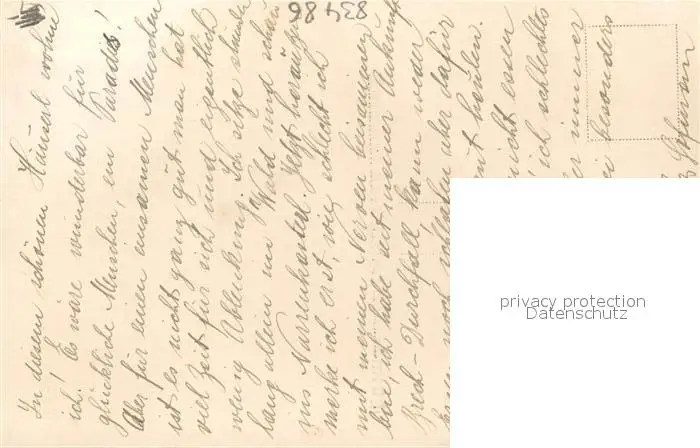 In diesem schönen Häuserl wohne
ich! Es wäre wunderbar für
glückliche Menschen, ein Paradies!
Aber für einen einsamen Menschen
ist es nicht ganz gut man hat
viel Zeit für sich und eigentlich
wenig Ablenkung. Ich sitze stunden
lang allein im Wald und schau
ins Narrenkasterl. Jetzt
merke ich erst, wie schlecht ich
mit meinen Nerven beisammen
bin, ich habe seit meiner Ankunft
Brech-Durchfall kann weder
noch schlafen aber dafür
heulen.
nicht essen
ich schlechtes
immer
besonders
83486
privacy protection
Datenschutz